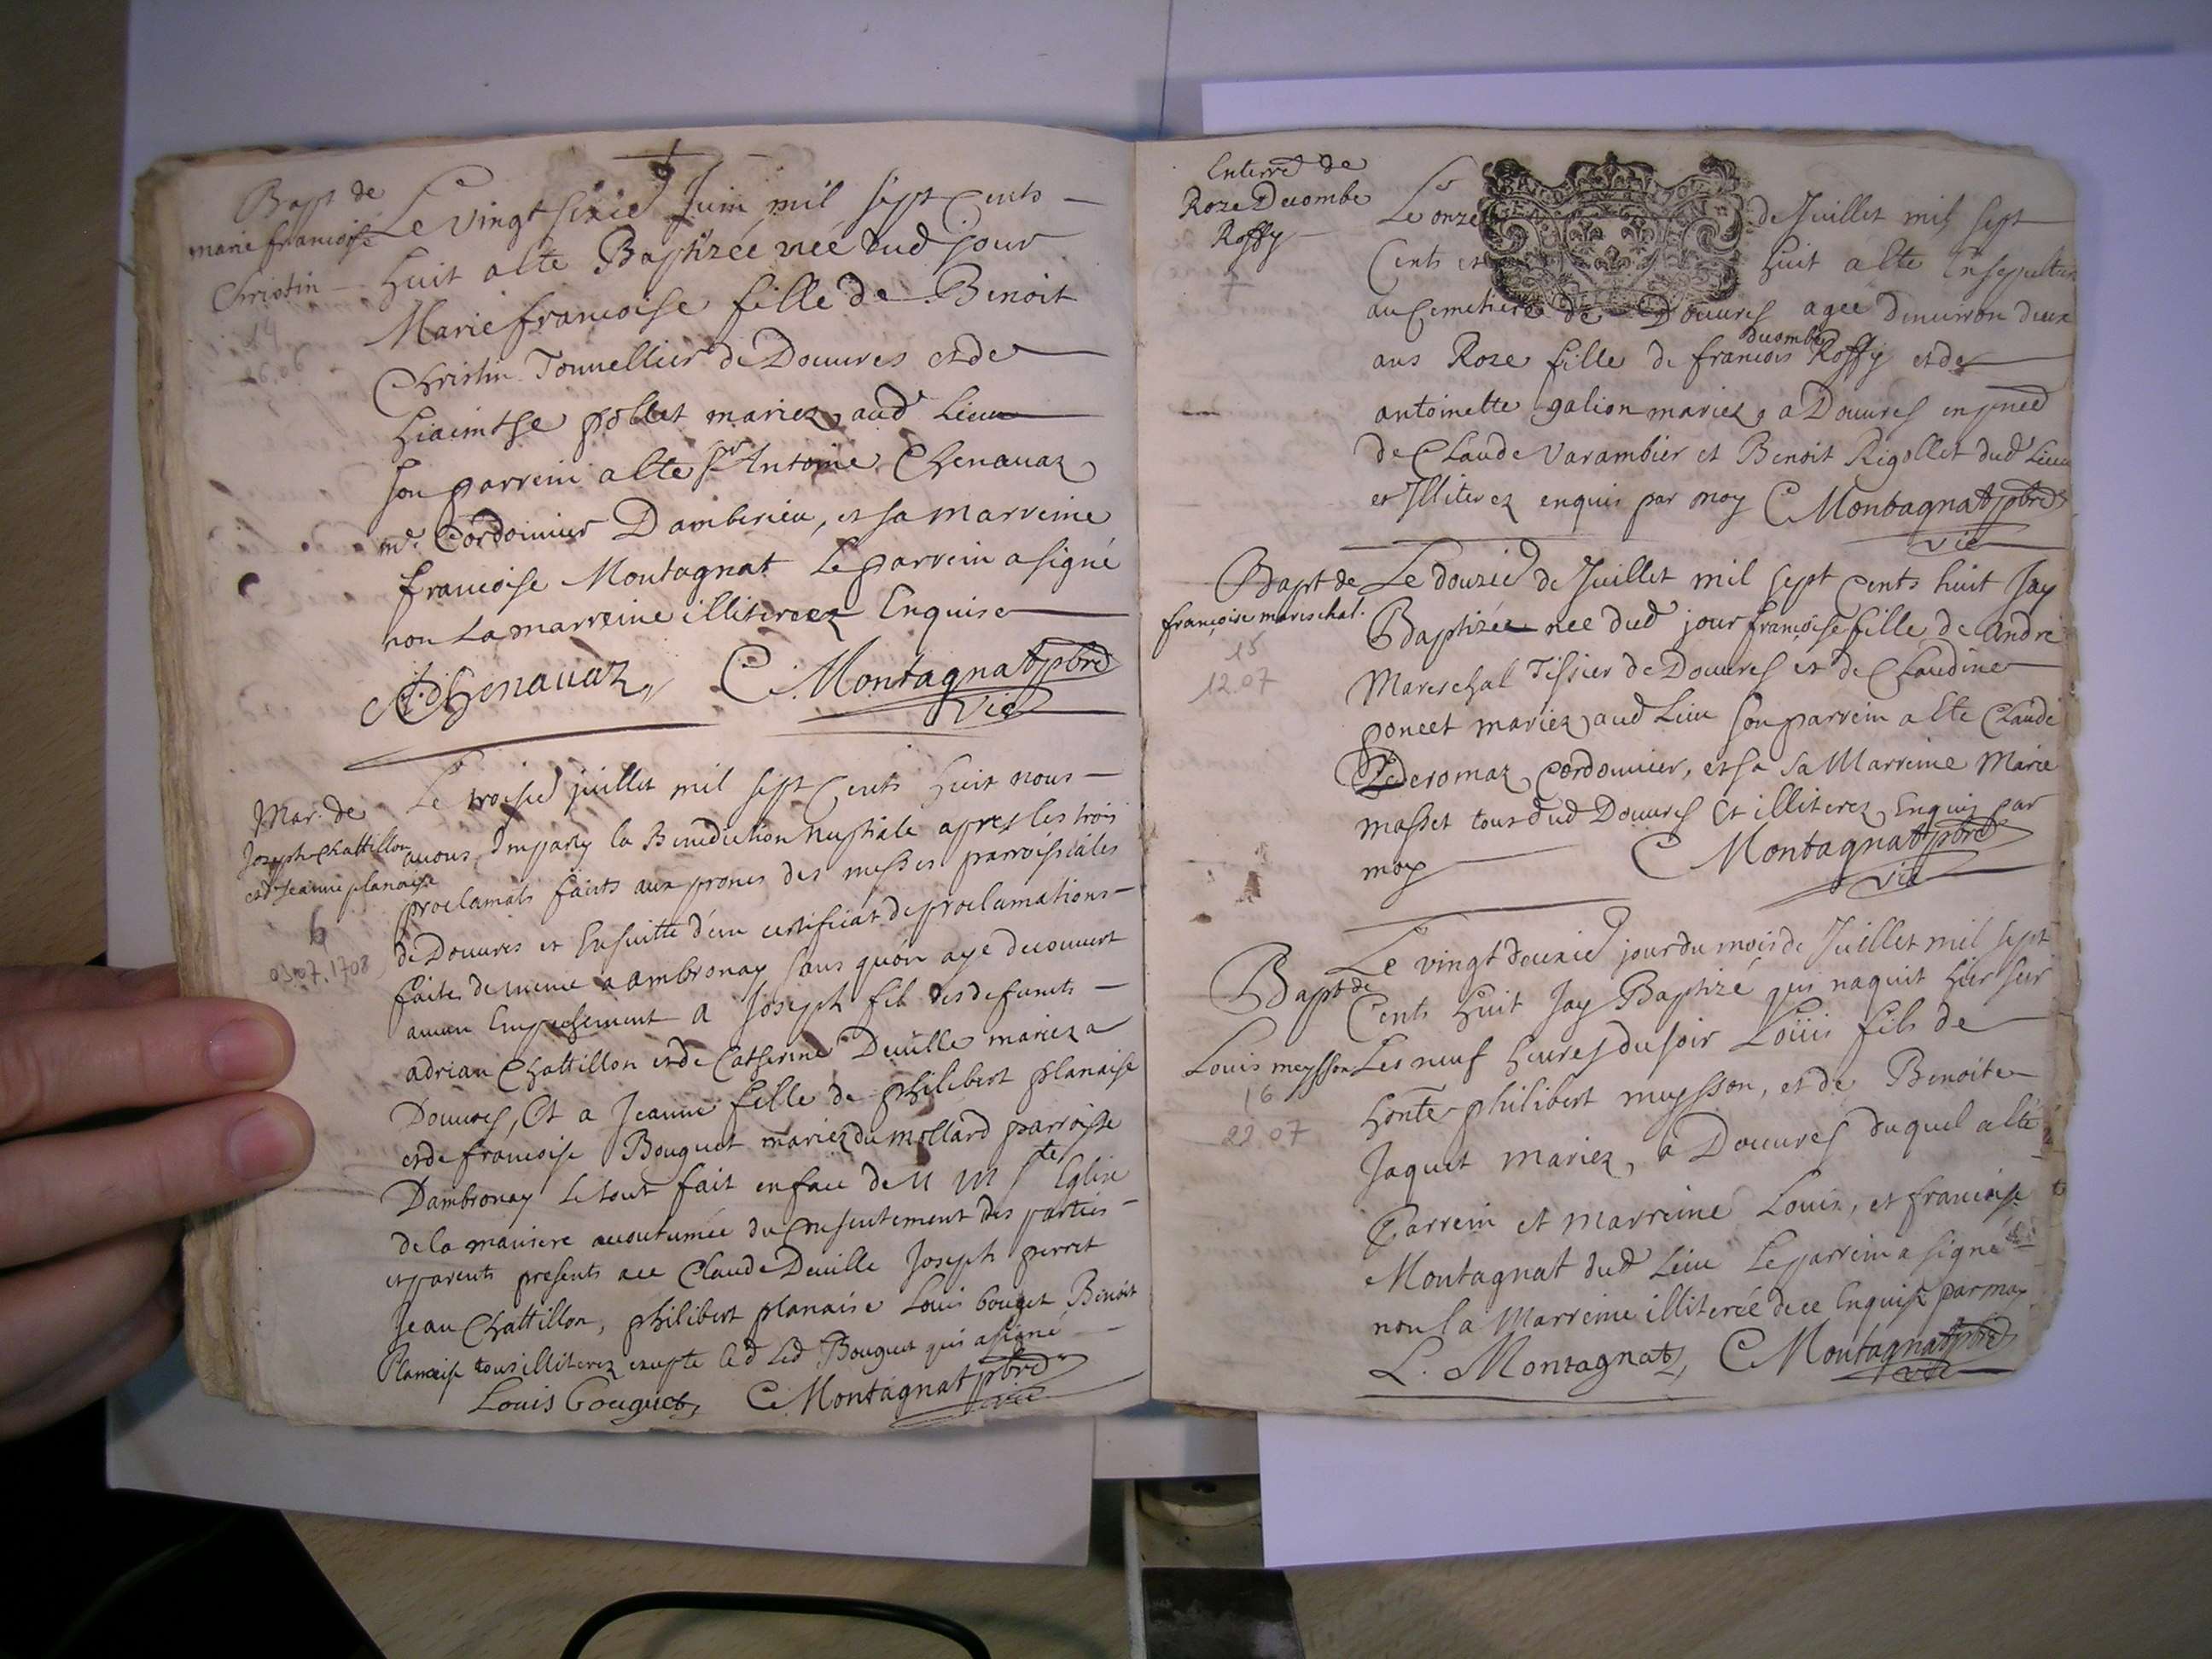 Bapt de
marie francoise
Christin
14
26.06
Le vingt sixie Juin mil sept cents
huit a ete Baptizée neé dud jour
Marie francoise fille de Benoit
Christin Tonnellier de Douures et de
hiacinthe pollet mariez aud Lieu
son parrein a ete Sr Antoine Chenauaz
me Cordonnier Damberieu, et sa marreine
francoise Montagnat Le parrein a signé
non La marreine illitereez Enquise
A. Chenauaz C. Montagnat pbre
vic
Mar. de
Joseph Chattillon
et de Jeanne planaise
6
03.07.1708
Le troisie juillet mil sept Cents huit nous
auons Imparty la Benediction Nuptiale apres les trois
proclamats faits aux prones des messes parroissiales
de Douures et Ensuitte d'un certificat de proclamations
faites de meme a ambronay sans qu'on aye decouuert
aucun Empechement a Joseph fils des defuncts
adrian Chattillon et de Catherine Deuille mariez a
Douures, Et a Jeanne fille de philibert planaise
et de francoise Bouguet mariez du mollard parroisse
Dambronay Le tout fait en face de N M Ste Eglise
de la maniere accoutumée du Consentement des parties
et parents presents auec Claude Deuille Joseph perret
Jean Chattillon, philibert planaise Louis bouget Benoit
Planaise tous illiterez excepte Led Bouguet qui a signé
Louis Bouguet C Montagnat pbre
vic
Enterrt de
Roze Ducombe
Roffy
7
Le onze de Juillet mil sept
Cents et huit a ete Ensepulturé
au Cemetiere de Douures agée d'enuiron deux
ducombe
ans Roze fille de francois Roffy et de
antoinette galion mariez a Douures en pnce
de Claude Varambier et Benoit Rigollet dud Lieu
et Illiterez enquis par moy C Montagnat pbre
vic
Bapt de
françoise mareschal.
15
12.07
Le douzie de Juillet mil sept Cents huit Jay
Baptizée nee dud jour françoise fille de andré
Mareschal Tissier de Douures et de Claudine
poncet mariez aud Lieu son parrein a ete Claude
Deromaz Cordonnier, et sa sa Marreine Marie
masset tous dud Douures Et illiterez Enquis par
moy C Montagnat pbre
vic
Bapt de
Louis meysson
16
22.07
Le vingt deuxie jour du mois de Juillet mil sept
Cents huit Jay Baptizé qui naquit hier sur
Les neuf heures du soir Loüis fils de
honte philibert meysson, et de Benoite
Jaquet mariez, a Douures duquel a ete
Parrein et marreine Louis, et francoise
Montagnat dud Lieu Le parrein a signé
non la Marreine illiterée de ce Enquise par moy
L. Montagnat, C Montagnat pbre
vic